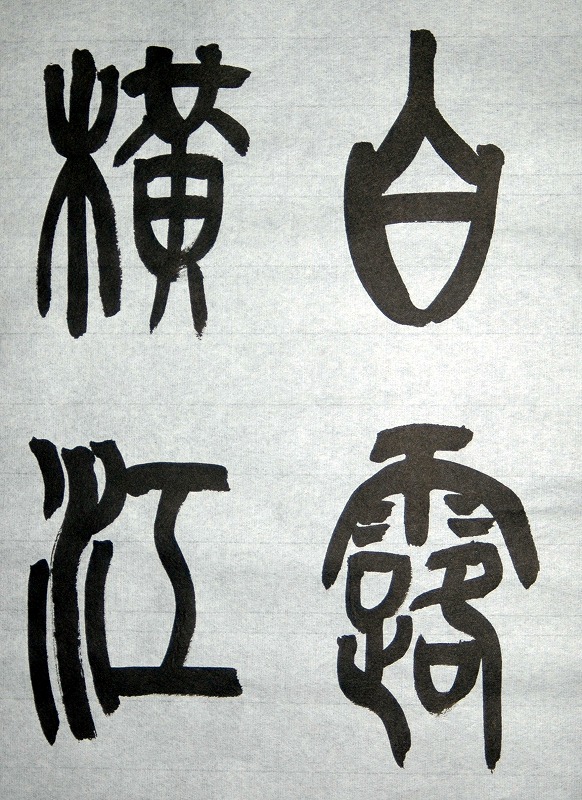 白露
橫江